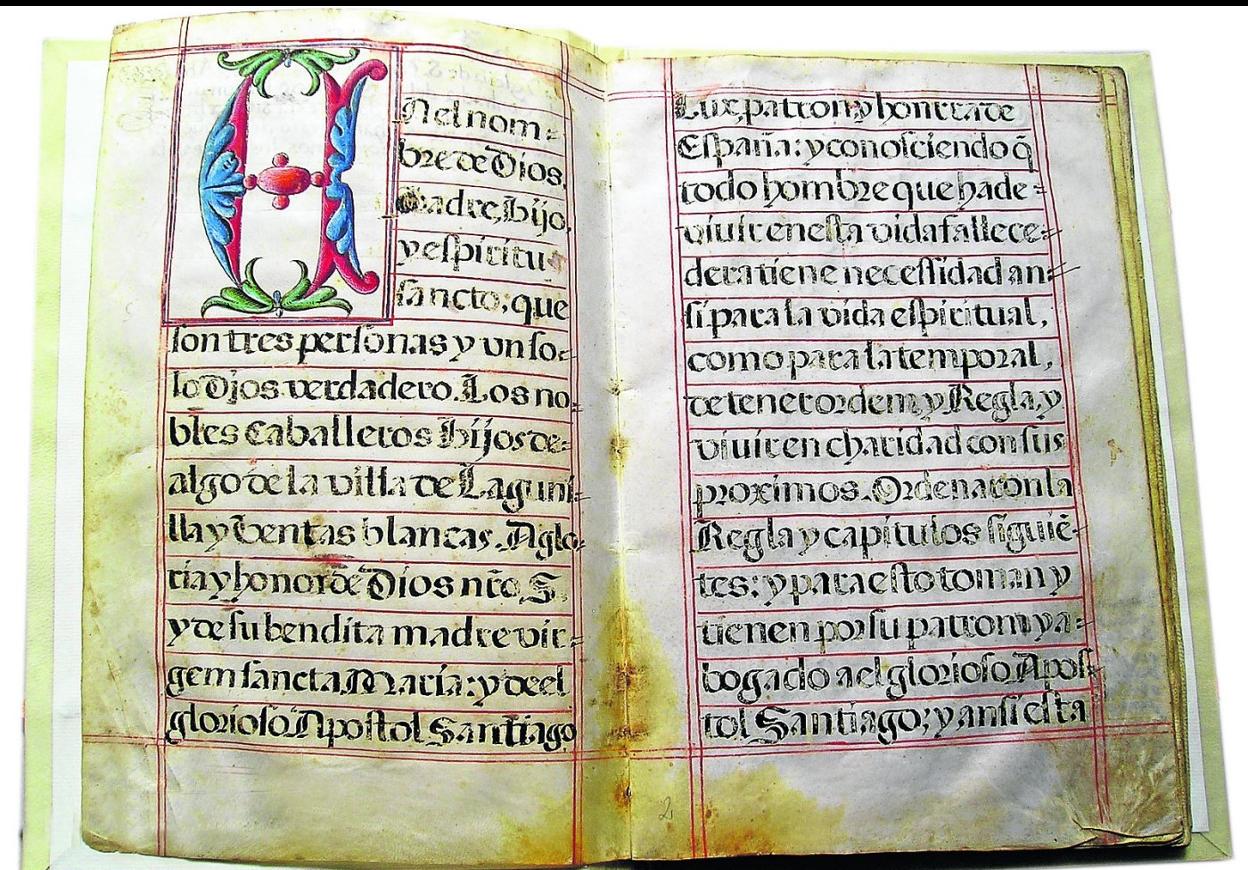 A Nel nom=
bre de Dios.
Padre, hijo,
y espiritu
sancto; que
son tres personas y un so=
lo Dios verdadero. Los no=
bles Caballeros hijos de=
algo de la villa de Laguni=
lla y Ventas blancas. A glo=
ria y honor de Dios nr̃o, S.
y de su bendita madre vir=
gem sancta Maria: y de el
glorioso Apostol Santiago
Luz, patron, y honrra de
España: y conosciendo q̃
todo hombre que ha de=
viuir en esta vida fallece=
dera tiene necessidad an=
si para la vida espiritual,
como para la temporal,
de tener ordem, y Regla, y
viuir en charidad con sus
proximos. Ordenaron la
Regla y capitulos siguiẽ=
tes: y para esto toman y
tienen por su patrom y a=
bogado a el glorioso Apos=
tol Santiago; y ansi esta
2